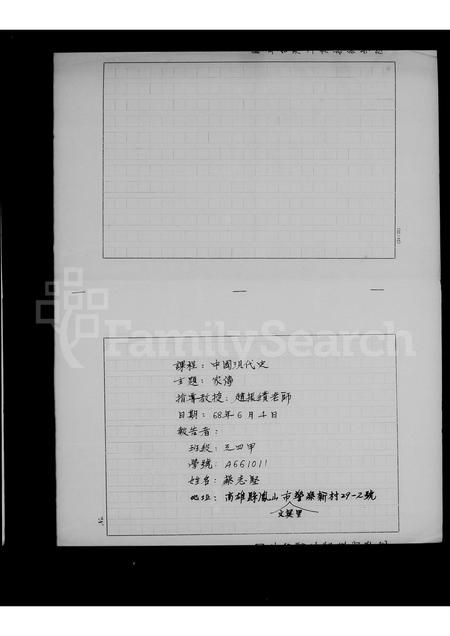 FamilySearch
課程：中國現代史
主題：家傳
指導教授：趙振績老師
日期：68年6月4日
報告者：
班級：三四甲
學號：A661011
姓名：蔡志堅
地址：高雄縣鳳山市學廉新村29-2號
文英里